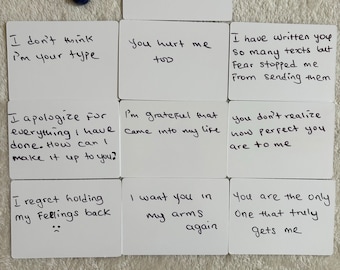 I don't think
I'm your type
You hurt me
too
I have written you
so many texts but
Fear stopped me
From sending them
I apologize for
everything I have
done. How can I
make it up to you?
I'm grateful that
came into my life
you don't realize
how perfect you
are to me
I regret holding
my feelings back
:(
I want you in
my arms
again
You are the only
one that truly
gets me